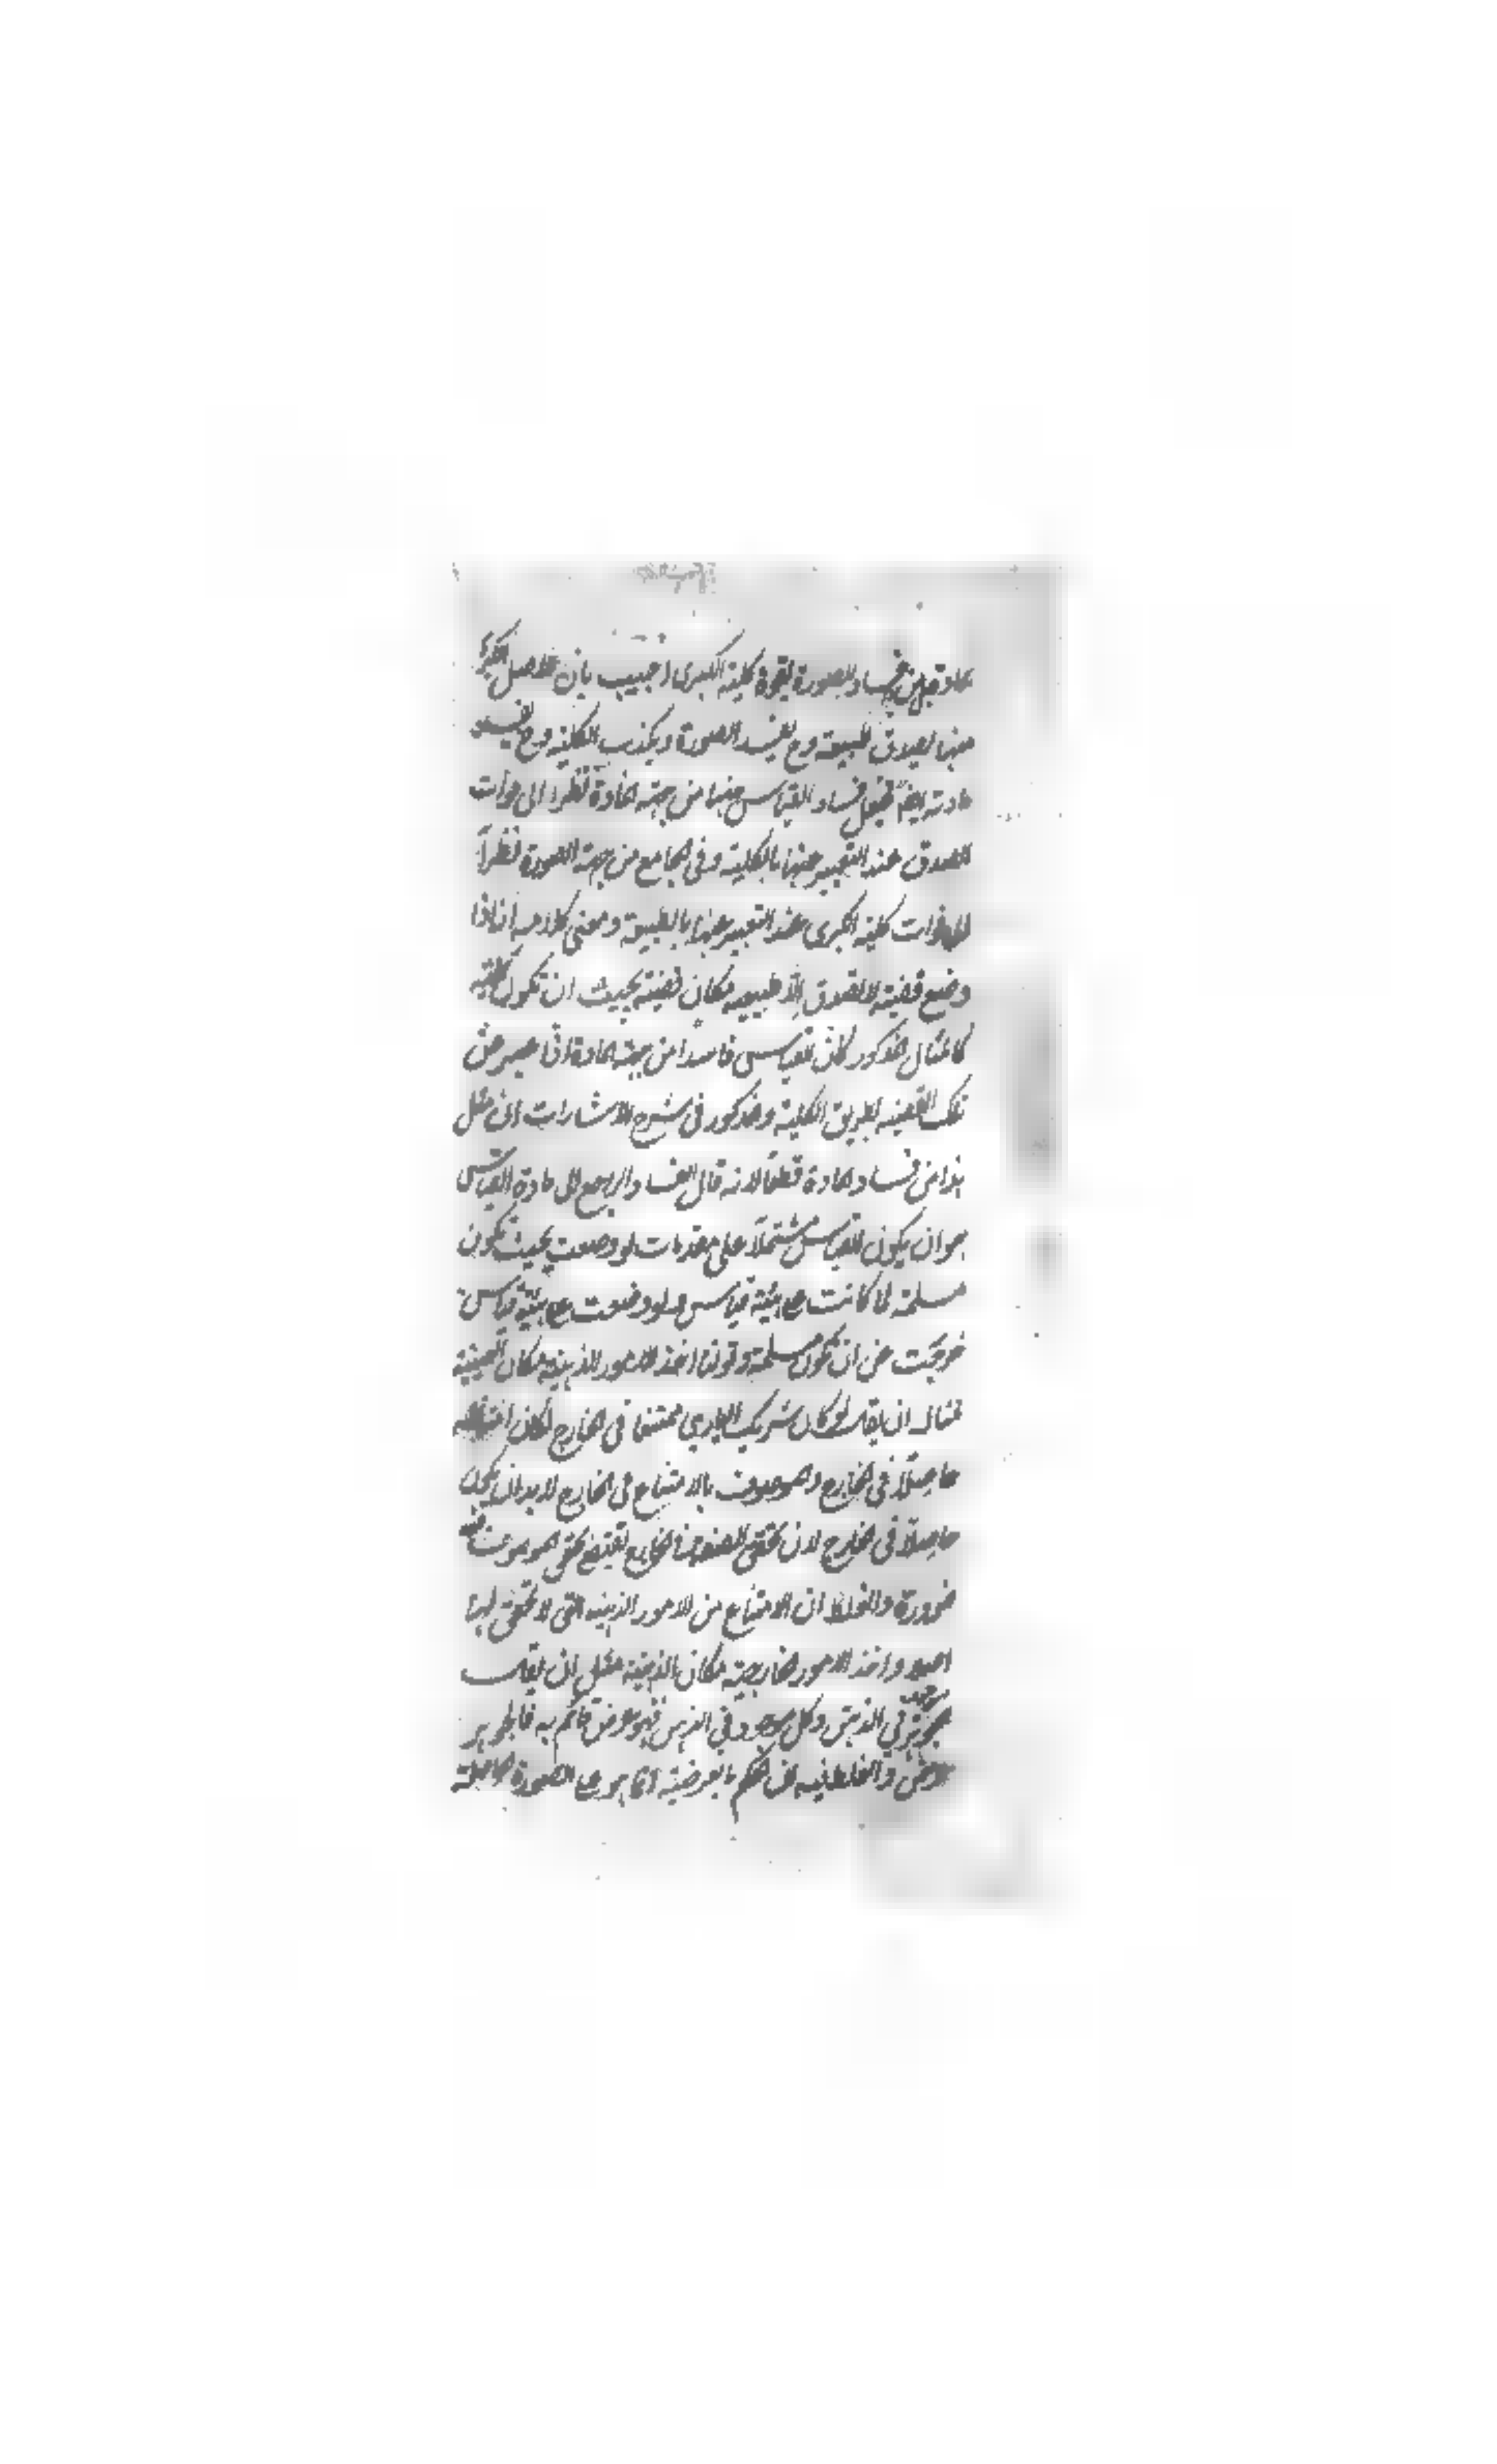 المادة قيل من فساد الصورة لقوة كلية الكبرى اجيب بان الحاصل
منها يصدق طبيعة وح يفسد الصورة ويكذب الكلية وح يفسد
مادته ايضا فجعل فساد القياس ههنا من جهة المادة نظرا الى فوات
الصدق عند التعبير عنها بالكلية وفى الجامع من جهة الصورة نظراً
الى فوات كلية الكبرى عند التعبير عنها بالطبيعة ومعنى كلامه انه اذا
وضع قضية لا تصدق الا طبيعية مكان قضية بحيث ان تكون كلية
كالمثال المذكور كان القياس فاسدا من جهة المادة اذا عبر عن
تلك القضية بطريق الكلية والمذكور فى شرح الاشارات ان مثل
هذا من فساد المادة قطعا لانه قال الفساد الراجع الى مادة القياس
هو ان يكون القياس مشتملاً على مقدمات لو وضعت بحيث تكون
مسلمة لما كانت على هيئة قياس ولو وضعت على هيئة قياس
خرجت عن ان تكون مسلمة وقوله اخذ الامور الذهنية مكان العينية
مثاله ان يقال لو كان شريك البارى ممتنعا فى الخارج لكان امتناعه
حاصلاً فى الخارج والموصوف بالامتناع فى الخارج لا بد ان يكون
حاصلاً فى الخارج لان تحقق الصفة فى الخارج يقتضى تحقق الموصوف فيه
ضرورة والغلط ان الامتناع من الامور الذهنية التى لا تحقق لها
اصلا واخذ الامور الخارجية مكان الذهنية مثل ان يقال
الجوهر موجود فى الذهن وكل موجود فى الذهن فهو عرض قائم به فالجوهر
عرض والغلط فيه ان الحكم بالعرضية انما هو على الصورة الحاصلة